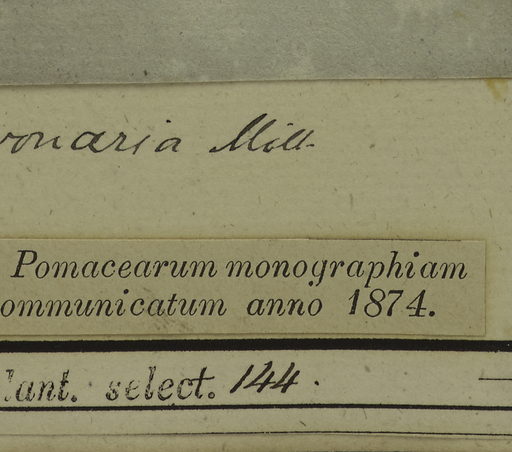 vonaria Mill.
Pomacearum monographiam
ommunicatum anno 1874.
lant. select. 144.